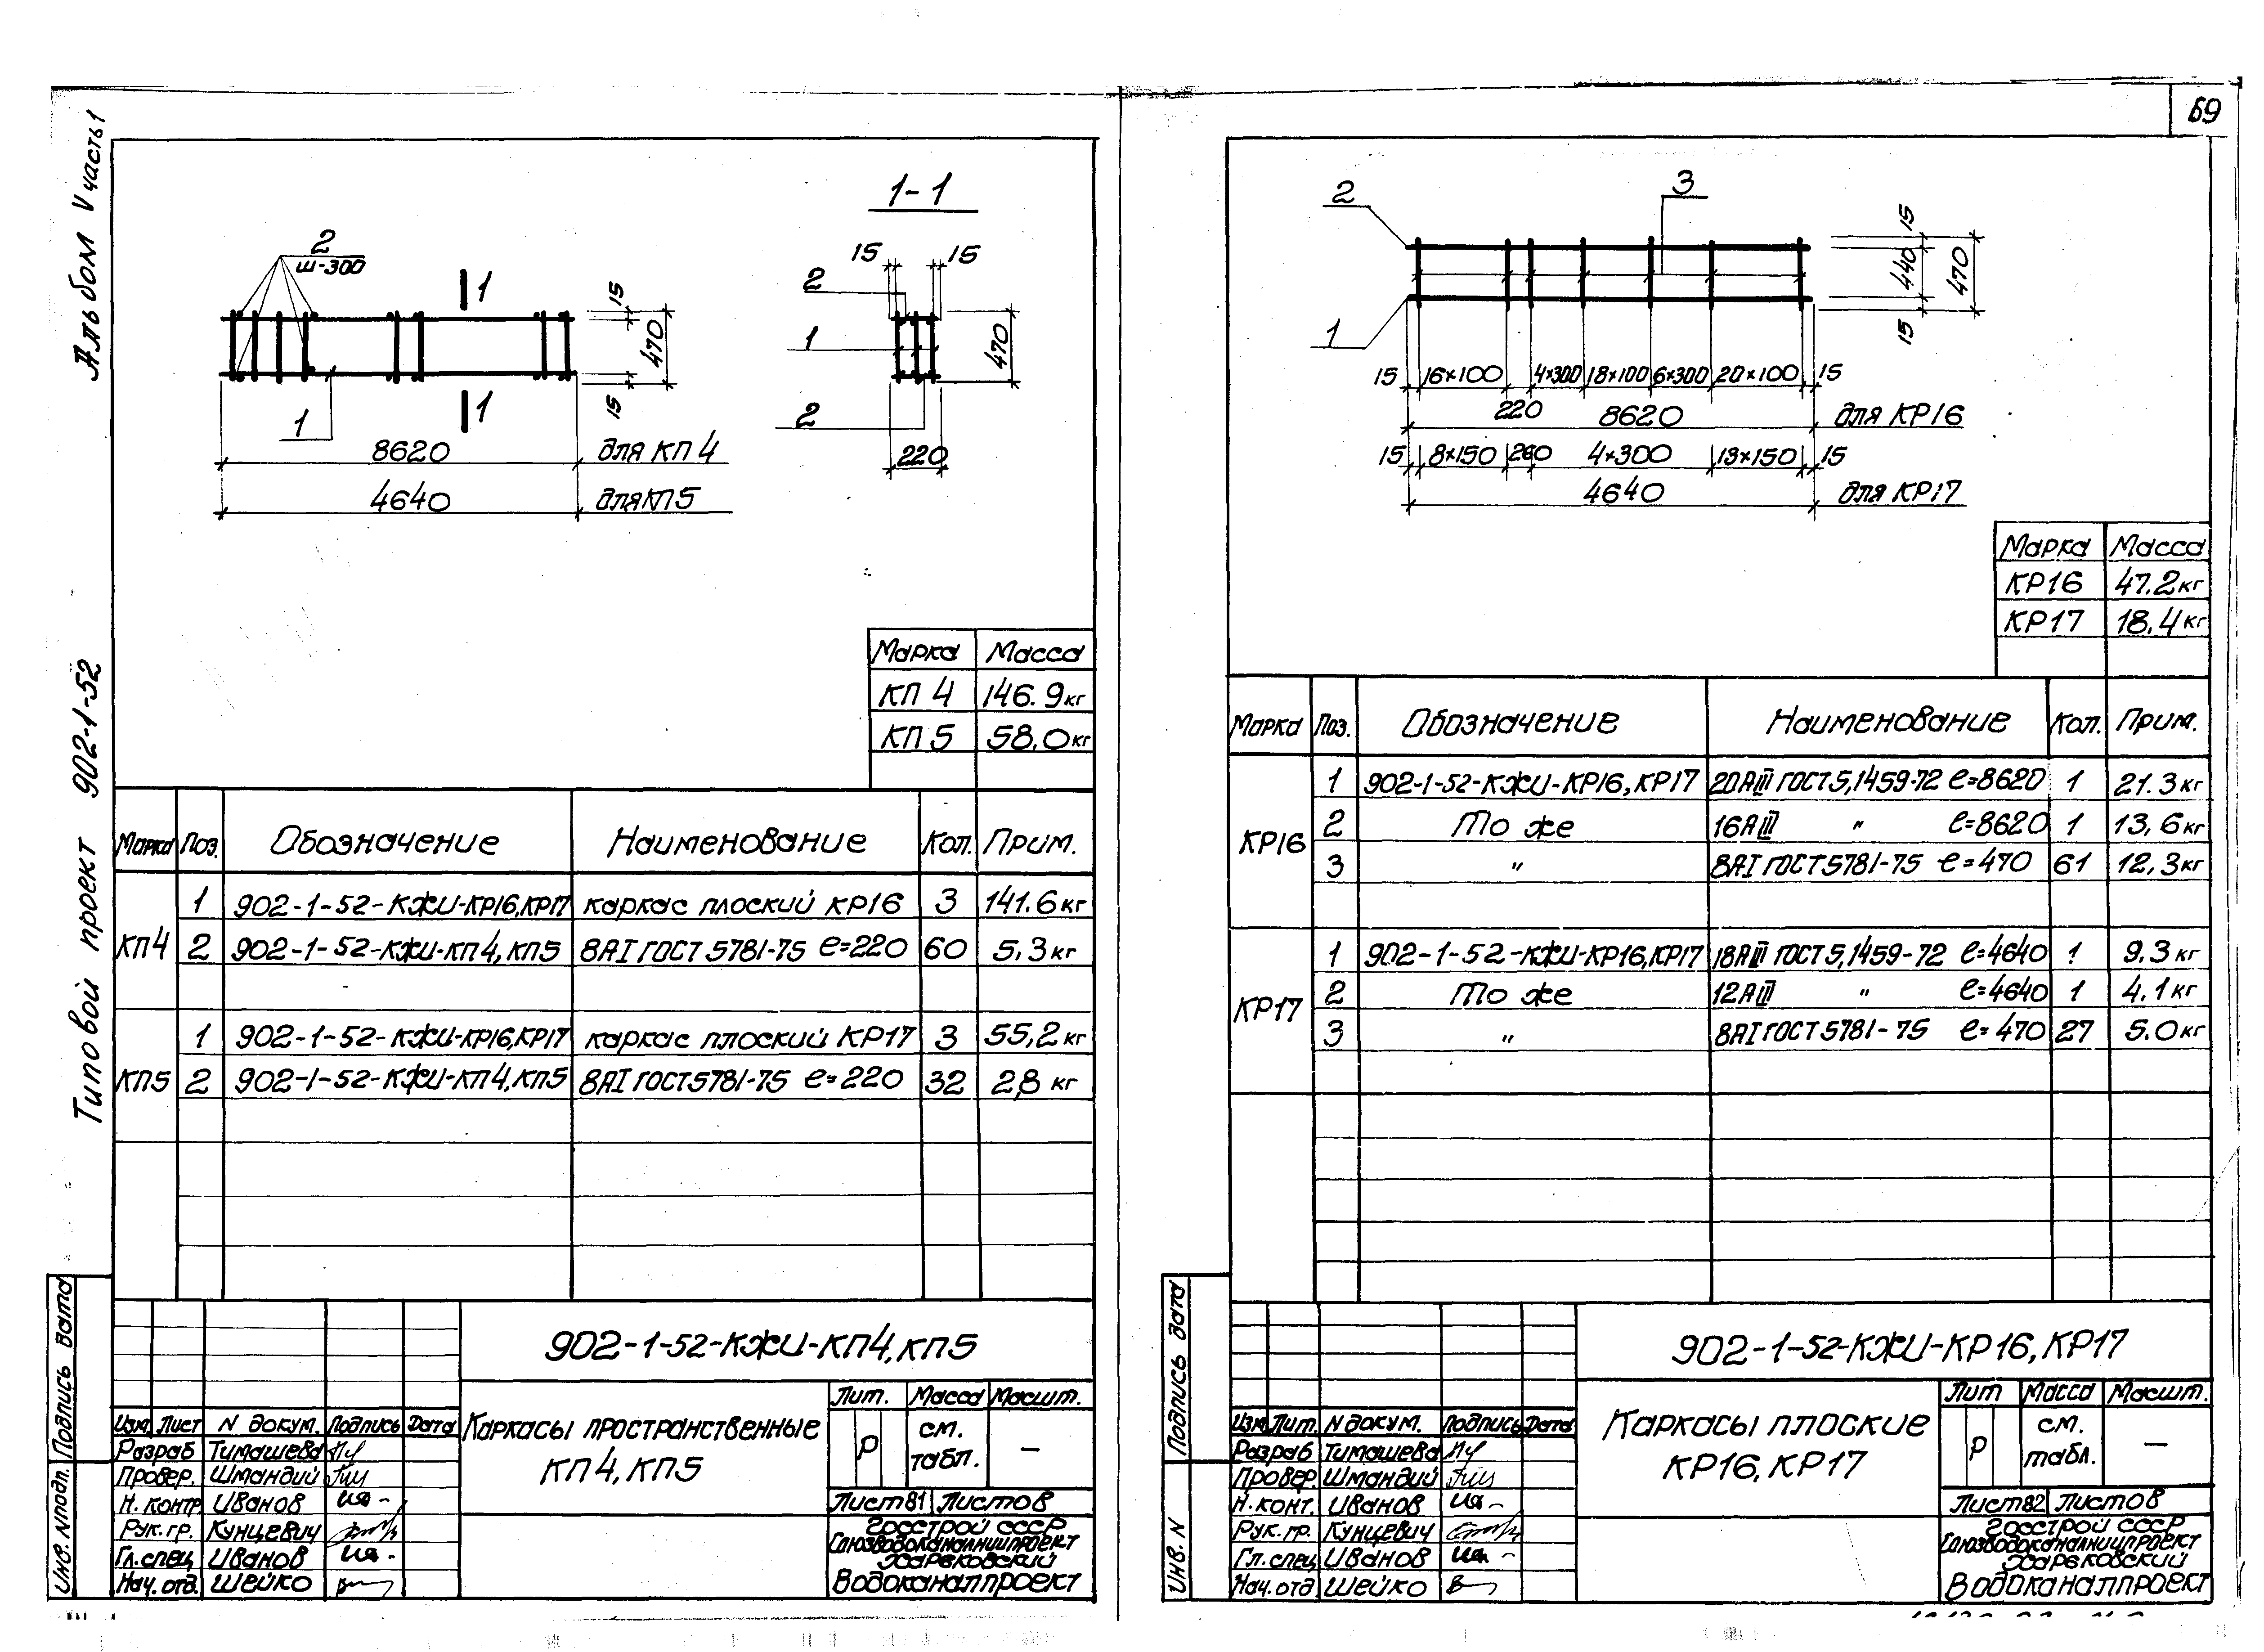 69
Альбом V часть 1
Типовой проект 902-1-52
1-1
2
ш-300
1
1
1
15
470
15
8620 для КП 4
4640 для КП5
15 15
2
1
2
470
220
Марка Масса
КП 4 146.9 кг
КП 5 58.0 кг
Марка Поз. Обозначение Наименование Кол. Прим.
КП4
1 902-1-52-КЖИ-КР16,КР17 каркас плоский КР16 3 141.6 кг
2 902-1-52-КЖИ-КП4,КП5 8АI ГОСТ 5781-75 ℓ=220 60 5,3 кг
КП5
1 902-1-52-КЖИ-КР16,КР17 каркас плоский КР17 3 55,2 кг
2 902-1-52-КЖИ-КП4,КП5 8АI ГОСТ5781-75 ℓ=220 32 2,8 кг
902-1-52-КЖИ-КП4,КП5
Каркасы пространственные
КП4, КП5
Лит. Масса Масшт.
Р см. табл. —
Лист 81 Листов
Госстрой СССР
Союзводоканалниипроект
Харьковский
Водоканалпроект
Изм Лист N докум. Подпись Дата
Разраб Тимашева
Провер. Шмандий
Н. контр. Иванов
Рук. гр. Кунцевич
Гл. спец Иванов
Нач. отд. Шейко
Подпись дата
Инв. N подл.
2
3
1
15
440
470
15
15 16×100 4×300 18×100 6×300 20×100 15
220 8620 для КР16
15 8×150 260 4×300 13×150 15
4640 для КР17
Марка Масса
КР16 47.2 кг
КР17 18.4 кг
Марка Поз. Обозначение Наименование Кол. Прим.
КР16
1 902-1-52-КЖИ-КР16,КР17 20АIII ГОСТ5,1459-72 ℓ=8620 1 21.3 кг
2 То же 16АIII " ℓ=8620 1 13,6 кг
3 " 8АI ГОСТ5781-75 ℓ=470 61 12,3 кг
КР17
1 902-1-52-КЖИ-КР16,КР17 18АIII ГОСТ5,1459-72 ℓ=4640 1 9.3 кг
2 То же 12АIII " ℓ=4640 1 4.1 кг
3 " 8АI ГОСТ5781-75 ℓ=470 27 5.0 кг
902-1-52-КЖИ-КР16,КР17
Каркасы плоские
КР16, КР17
Лит Масса Масшт.
Р см. табл. —
Лист 82 Листов
Госстрой СССР
Союзводоканалниипроект
Харьковский
Водоканалпроект
Изм Лит. N докум. Подпись Дата
Разраб Тимашева
Провер. Шмандий
Н. конт. Иванов
Рук. гр. Кунцевич
Гл. спец Иванов
Нач. отд Шейко
Подпись дата
Инв. N